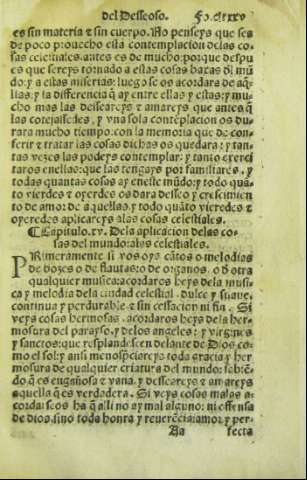 del Desseoso. Fo.clxxv
es sin materia ⁊ sin cuerpo. No penseys que sea
de poco prouecho esta contemplacion delas co-
sas celestiales. antes es de mucho: porque despu
es que sereys tornado a estas cosas baxas dl mū
do: y a estas miserias: luego se os acordara de aq̄-
llas: y la differencia q̄ ay entre ellas y estas: y mu
cho mas las dessearcys ⁊ amareys que antes q̄
las cotejassedes. y vna sola contēplacion os du-
rara mucho tiempo. con la memoria que de con-
ferir ⁊ tratar las cosas dichas os quedara: y tan-
tas vezes las podeys contemplar: y tanto exerci
taros enellas: que las tengays por familiares. y
todas quantas cosas ay eneste mūdo: y todo quā-
to vierdes ⁊ oyerdes os dara desseo y crescimien
to de amor: de aquellas: y todo quāto vieredes ⁊
oyeredes aplicareys alas cosas celestiales.
¶ Capitulo.xv. De la aplicacion de las co-
sas del mundo: alas celestiales.
PRimeramente si vos oys cātos o melodias
de bozes o de flautas: o de organos. o d̄ otra
qualquier musica: acordaros heys dela musi-
ca y melodia dela ciudad celestial. dulce y suaue.
continua y perdurable ⁊ sin cessacion ni fin. Si
veys cosas hermosas. acordaros heys dela her-
mosura del parayso. y delos angeles: y virgines
y sanctos: que resplandescen delante de Dios co-
mo el sol: y ansi menospreciareys toda gracia y her
mosura de qualquier criatura del mundo: sabiē-
do q̄ es engañosa ⁊ vana. y desseareys ⁊ amareys
aquella q̄ es verdadera. Si veys cosas malas a-
cordaseos ha q̄ alli no ay mal alguno: ni offensa
de dios. sino toda honra y reuerēcia: amor y per-
Aa fecta